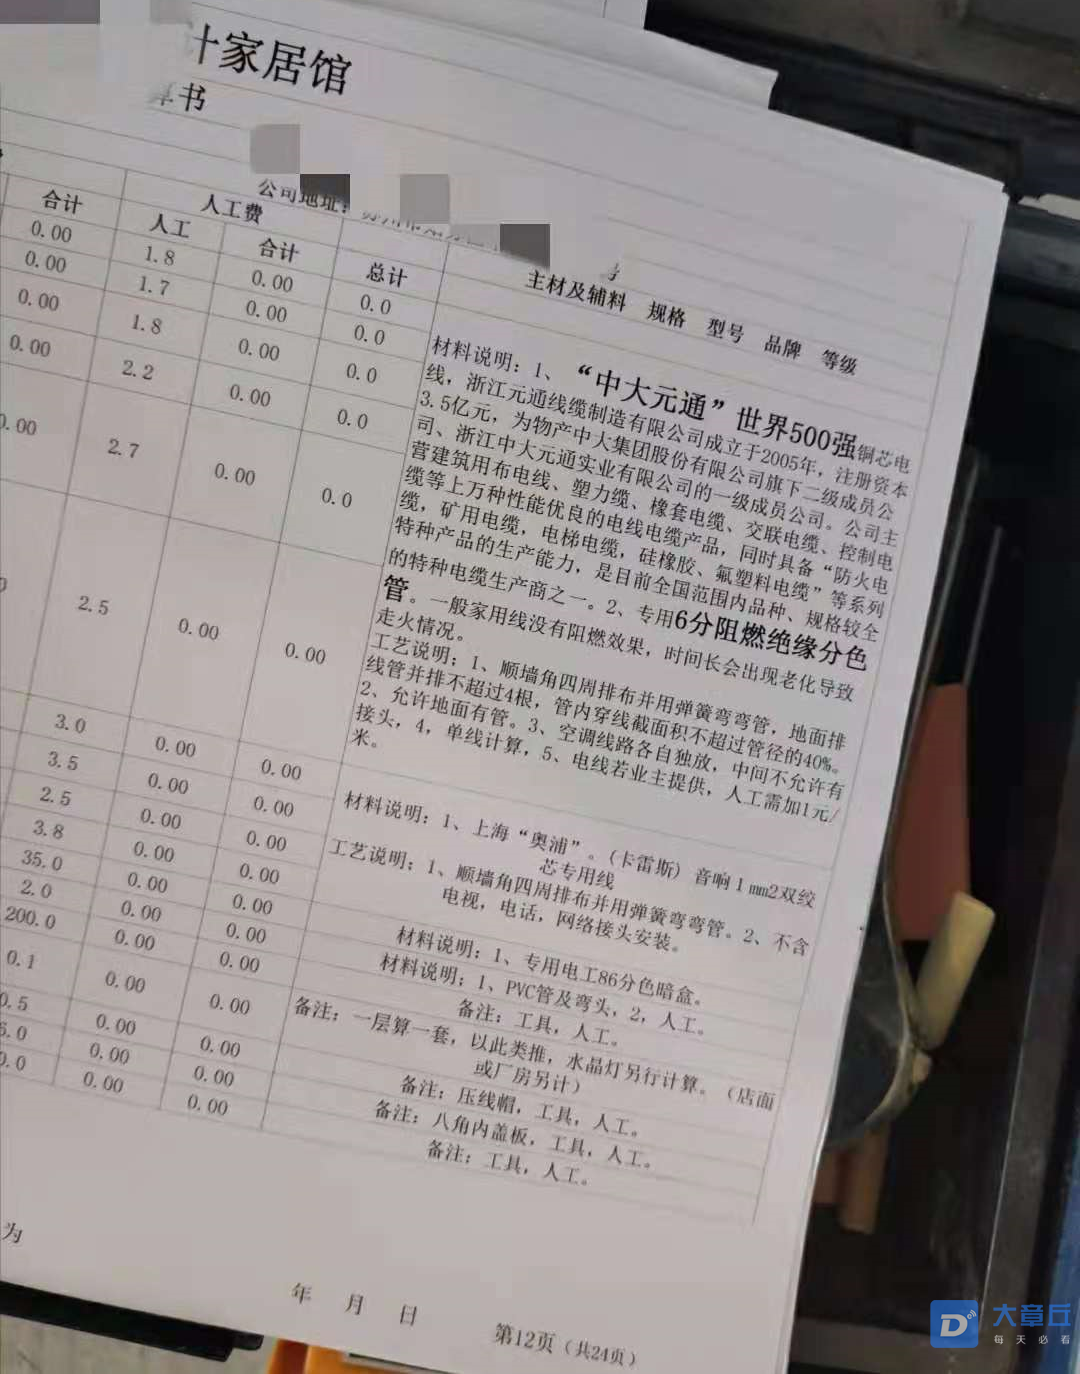 计家居馆
算书
公司地址：
合计 人工费
人工 合计 总计 主材及辅料 规格 型号 品牌 等级
0.00 1.8 0.00 0.0
0.00 1.7 0.00 0.0
0.00 1.8 0.00 0.0
0.00 2.2 0.00 0.0
0.00 2.7 0.00 0.0
材料说明：1、“中大元通”世界500强铜芯电
线，浙江元通线缆制造有限公司成立于2005年，注册资本
3.5亿元，为物产中大集团股份有限公司旗下二级成员公
司、浙江中大元通实业有限公司的一级成员公司。公司主
营建筑用布电线、塑力缆、橡套电缆、交联电缆、控制电
缆等上万种性能优良的电线电缆产品，同时具备“防火电
缆，矿用电缆，电梯电缆，硅橡胶、氟塑料电缆”等系列
特种产品的生产能力，是目前全国范围内品种、规格较全
的特种电缆生产商之一。2、专用6分阻燃绝缘分色
管。一般家用线没有阻燃效果，时间长会出现老化导致
走火情况。
工艺说明；1、顺墙角四周排布并用弹簧弯弯管，地面排
线管并排不超过4根，管内穿线截面积不超过管径的40%。
2、允许地面有管。3、空调线路各自独放，中间不允许有
接头，4，单线计算，5、电线若业主提供，人工需加1元/
米。
2.5 0.00 0.00
3.0 0.00 0.00
3.5 0.00 0.00
材料说明：1、上海“奥浦”。(卡雷斯) 音响1mm2双绞
芯专用线
工艺说明：1、顺墙角四周排布并用弹簧弯弯管。2、不含
电视，电话，网络接头安装。
2.5 0.00 0.00
3.8 0.00 0.00
35.0 0.00 0.00
2.0 0.00 0.00
200.0 0.00 0.00
材料说明：1、专用电工86分色暗盒。
材料说明；1、PVC管及弯头，2，人工。
备注：工具，人工。
0.1 0.00 0.00 备注；一层算一套，以此类推，水晶灯另行计算。（店面
或厂房另计）
0.5 0.00 0.00 备注：压线帽，工具，人工。
5.0 0.00 0.00 备注：八角内盖板，工具，人工。
0.0 0.00 0.00 备注：工具，人工。
为
年 月 日
第12页（共24页）
大章丘
每天必看